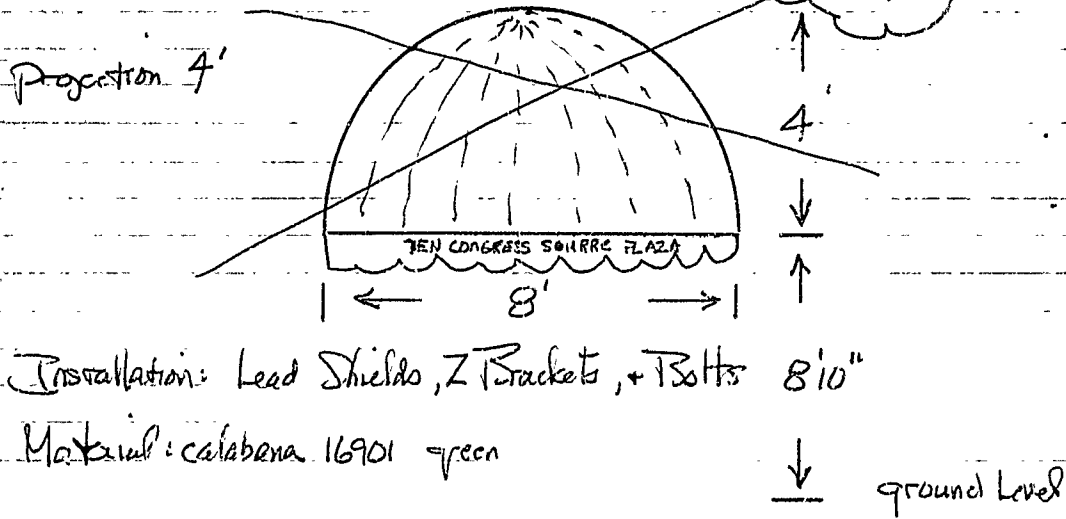 Projection 4'
4'
TEN CONGRESS SQUARE PLAZA
8'
Installation: Lead Shields, Z Brackets, + Bolts 8'10"
Material: calabana 16901 green
ground Level